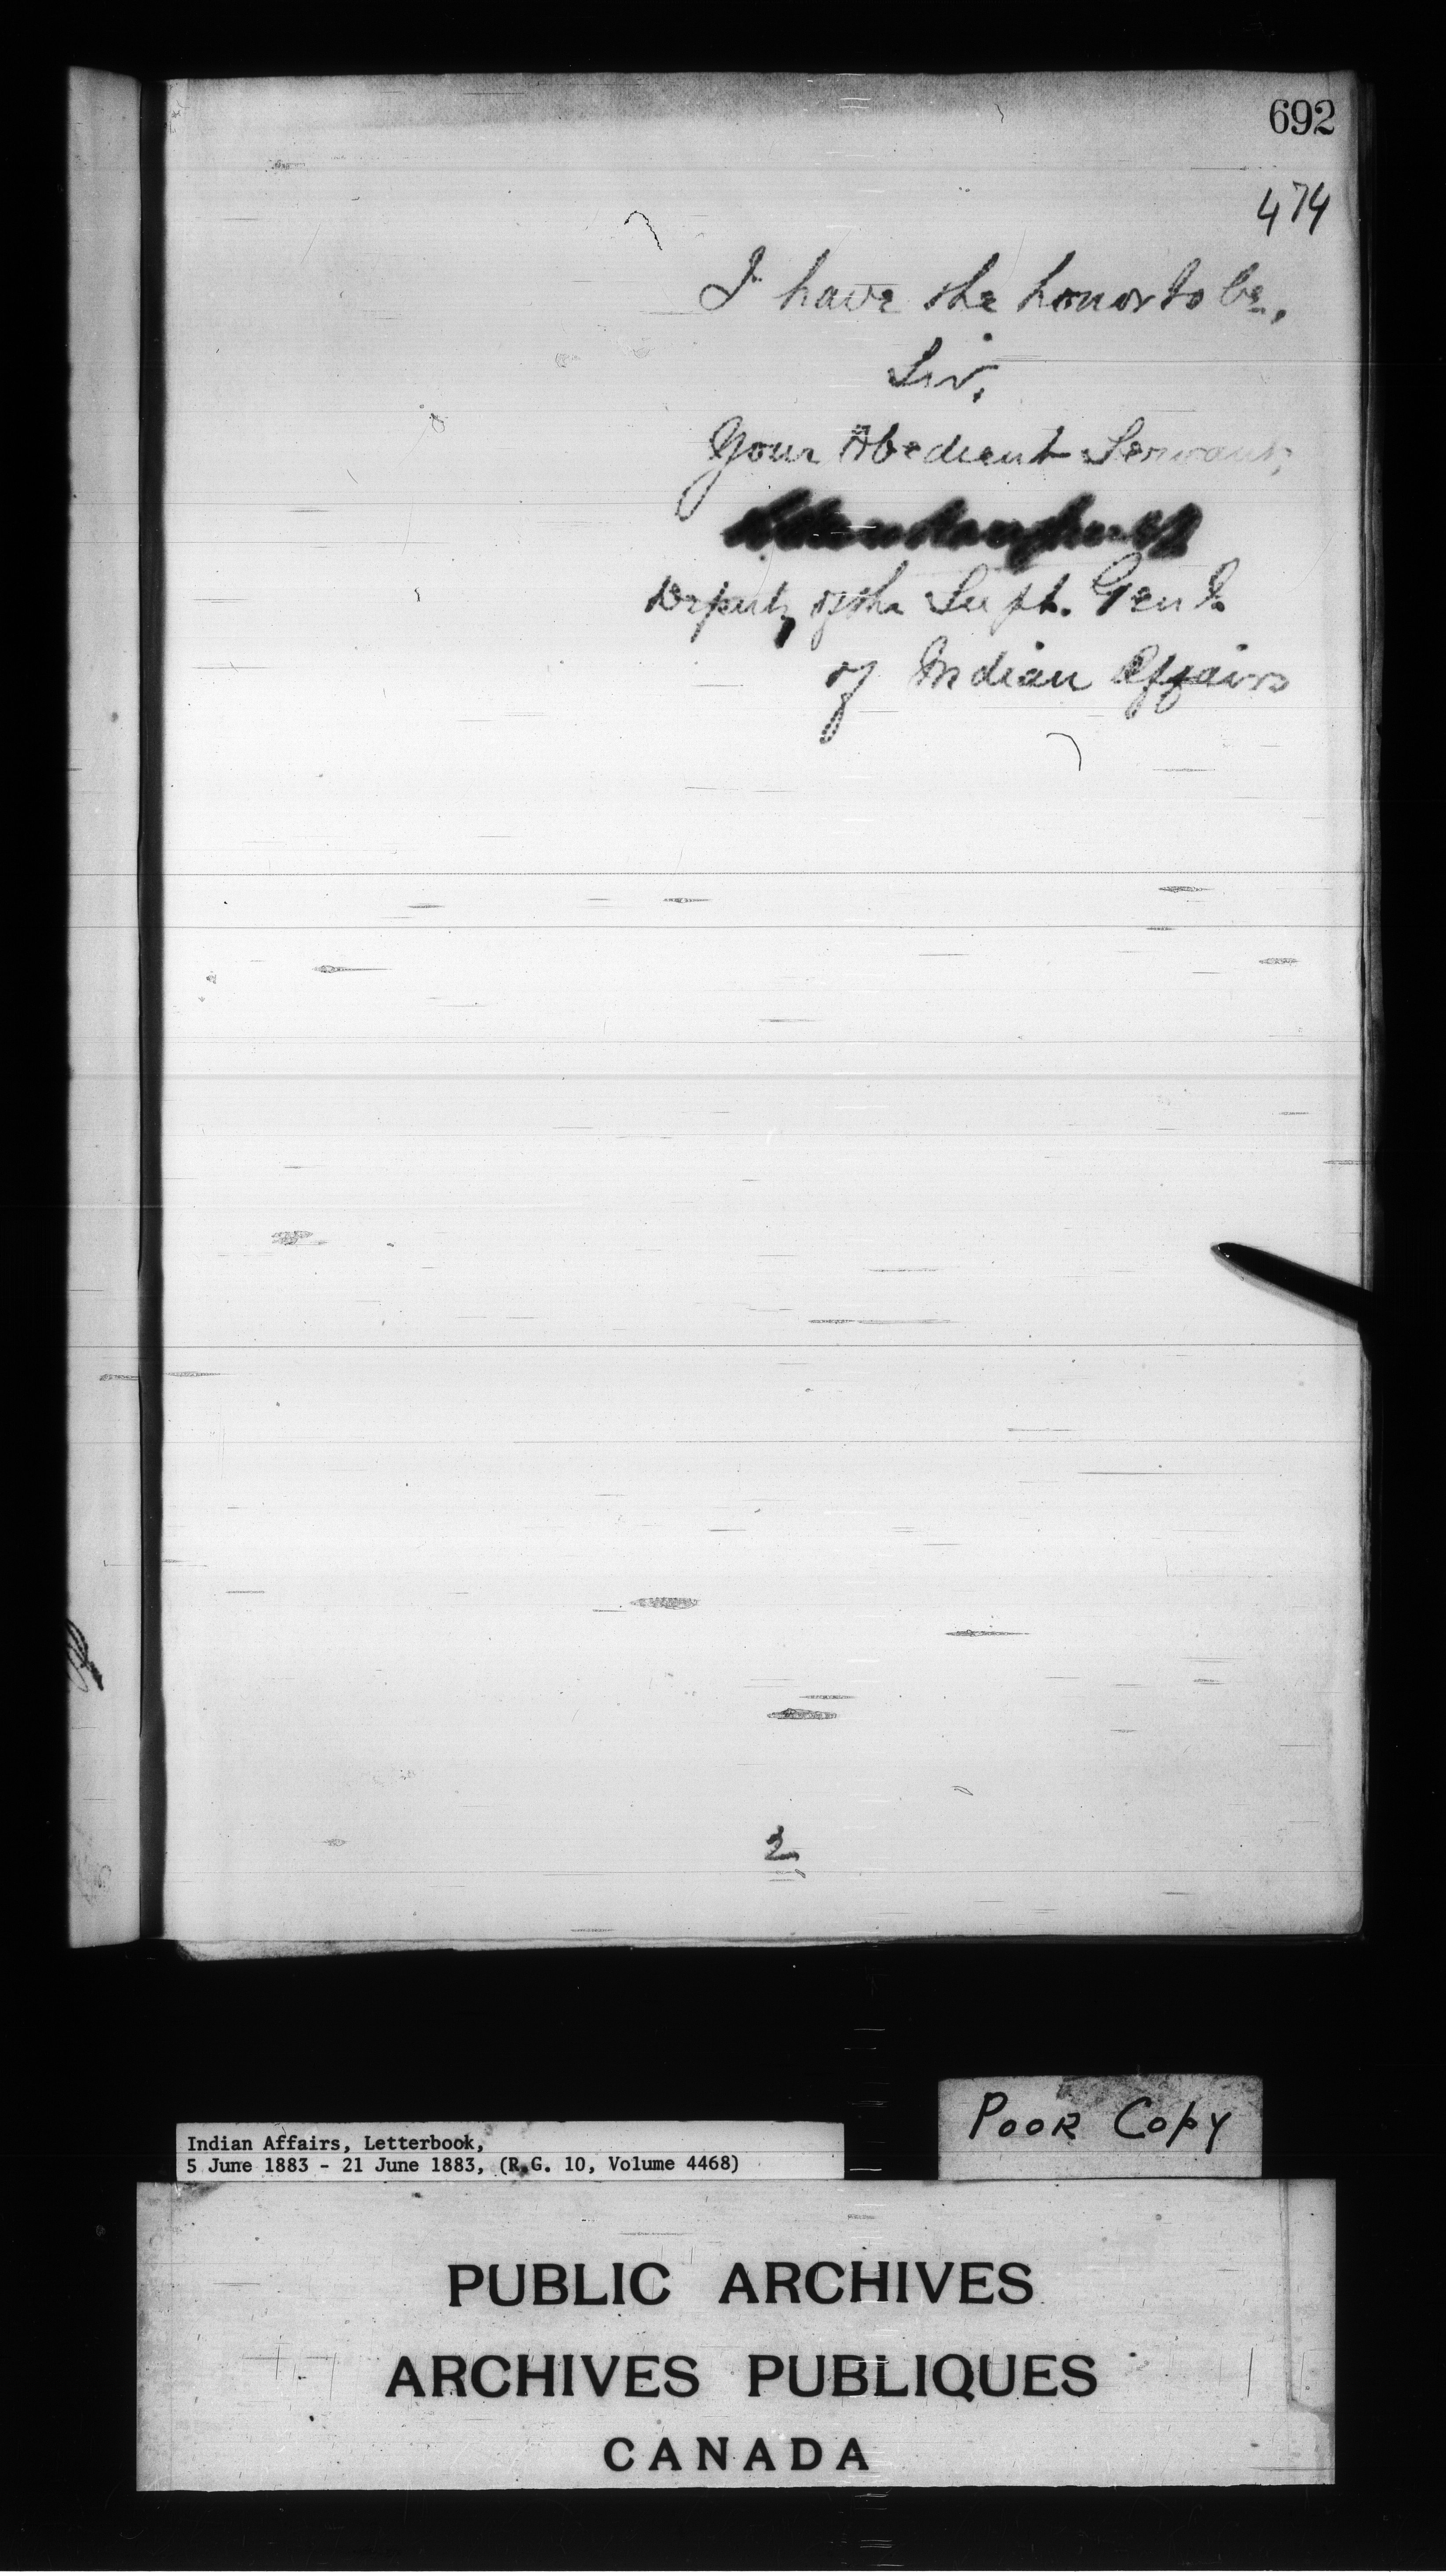 692
474
I have the honor to be,
Sir,
Your Obedient Servant,
Deputy of the Supt. Genl.
of Indian Affairs
2
POOR COPY
Indian Affairs, Letterbook,
5 June 1883 - 21 June 1883, (R.G. 10, Volume 4468)
PUBLIC ARCHIVES
ARCHIVES PUBLIQUES
CANADA